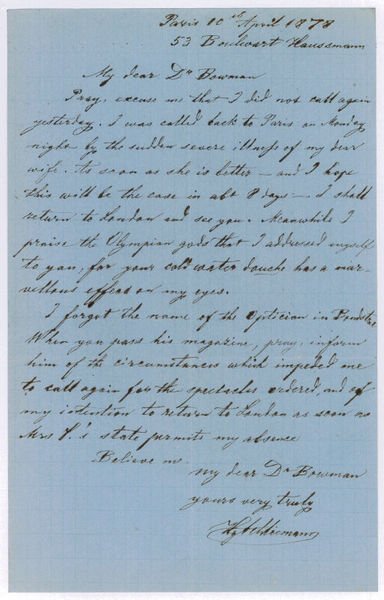 Paris 10th April 1878
53 Boulevart Haussmann
My dear Dr Bowman
Pray, excuse me that I did not call again
yesterday. I was called back to Paris on Monday
night by the sudden severe illness of my dear
wife. As soon as she is better – and I hope
this will be the case in abt 8 days – I shall
return to London and see you. Meanwhile I
praise the Olympian gods that I addressed myself
to you, for your cold water douche has a mar-
vellous effect on my eyes.
I forgot the name of the Optician in
When you pass his magazine, pray, inform
him of the circumstances which impeded me
to call again for the spectacles ordered, and of
my intention to return to London as soon as
Mrs S.'s state permits my absence
Believe me
my dear Dr Bowman
yours very truly
Hy Schliemann